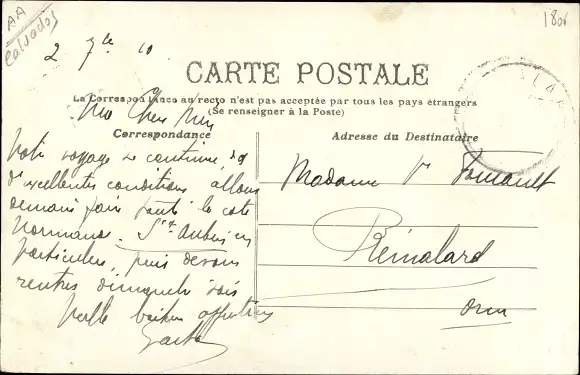 AA
Calvados
180
2 7bre 10
CARTE POSTALE
La Correspondance au recto n'est pas acceptée par tous les pays étrangers
(Se renseigner à la Poste)
Correspondance
Adresse du Destinataire
Ma Chère
Notre voyage se continue
d'excellentes conditions allons
demain faire toute la cote
Normande. St. Aubin en
particulier, puis devons
rentrer dimanche
baisers affectueux
Madame Vve
Rémalard
Orne